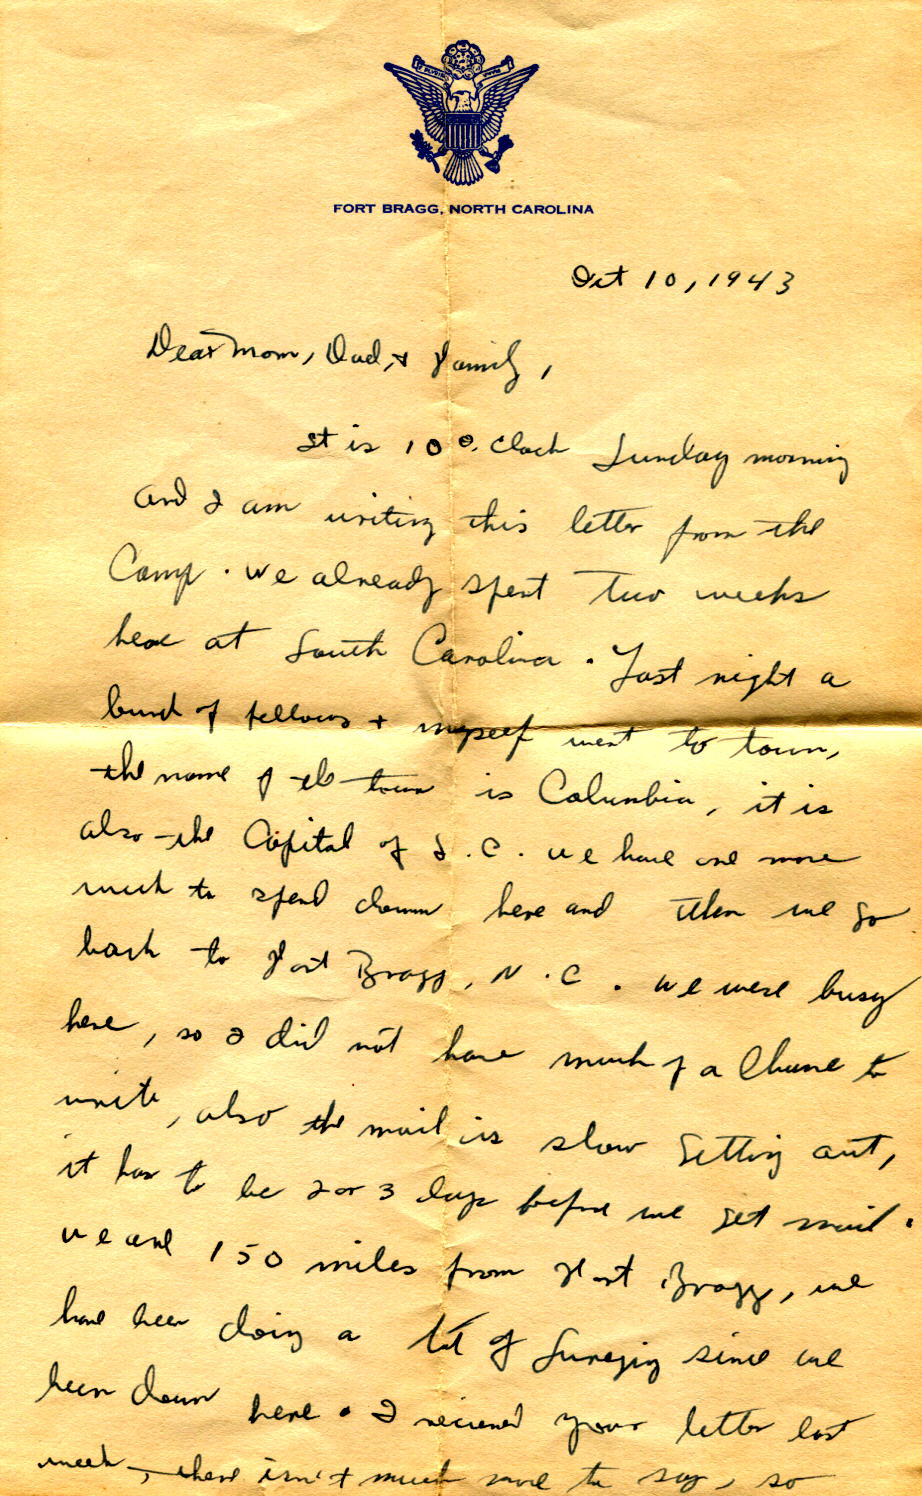 FORT BRAGG, NORTH CAROLINA
Oct 10, 1943
Dear Mom, Dad, & Family,
It is 10 o.clock Sunday morning
and I am writing this letter from the
Camp. We already spent two weeks
here at South Carolina. Last night a
bunch of fellows + myself went to town,
the name of the town is Columbia, it is
also the Capital of S.C. We have one more
week to spend down here and then we go
back to Fort Bragg, N.C. We were busy
here, so I did not have much of a Chance to
write, also the mail is slow getting out,
it has to be 2 or 3 days before we get mail.
We are 150 miles from Fort Bragg, we
have been doing a lot of since we
been down here. I recieved your letter last
week, there isn't much more to say, so